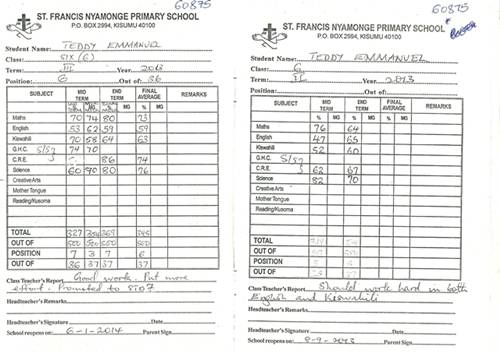 60875
ST. FRANCIS NYAMONGE PRIMARY SCHOOL
P.O. BOX 2994, KISUMU 40100
Student Name: TEDDY EMMANUEL
Class: SIX (6)
Term: III Year 2013
Position: 6 Out of: 36
SUBJECT MID TERM END TERM FINAL AVERAGE REMARKS
% MG
Maths 70 74 80 73
English 53 62 59 59
Kiswahili 70 58 64 63
G.H.C. S/S 74 70
C.R.E. 86 74
Science 60 90 80 76
Creative Arts
Mother Tongue
Reading/Kusoma
TOTAL 327 354 369 345
OUT OF 500 500 500 500
POSITION 7 3 7 6
OUT OF 36 37 37 37
Class Teacher's Report Good work. Put more
effort. Promoted to STD7
Headteacher's Remarks
Headteacher's Signature Date
School reopens on: 6-1-2014 Parent Sign.
60875
ST. FRANCIS NYAMONGE PRIMARY SCHOOL
P.O. BOX 2994, KISUMU 40100
Student Name: TEDDY EMMANUEL
Class: 6
Term: II Year 2013
Position: Out of:
SUBJECT MID TERM END TERM FINAL AVERAGE REMARKS
% MG % MG % MG
Maths 76 64
English 47 65
Kiswahili 52 60
G.H.C. S/S
C.R.E. 62 67
Science 82 70
Creative Arts
Mother Tongue
Reading/Kusoma
TOTAL
OUT OF
POSITION
OUT OF
Class Teacher's Report Should work hard in both
English and Kiswahili
Headteacher's Remarks
Headteacher's Signature Date
School reopens on: 2-9-2013 Parent Sign.